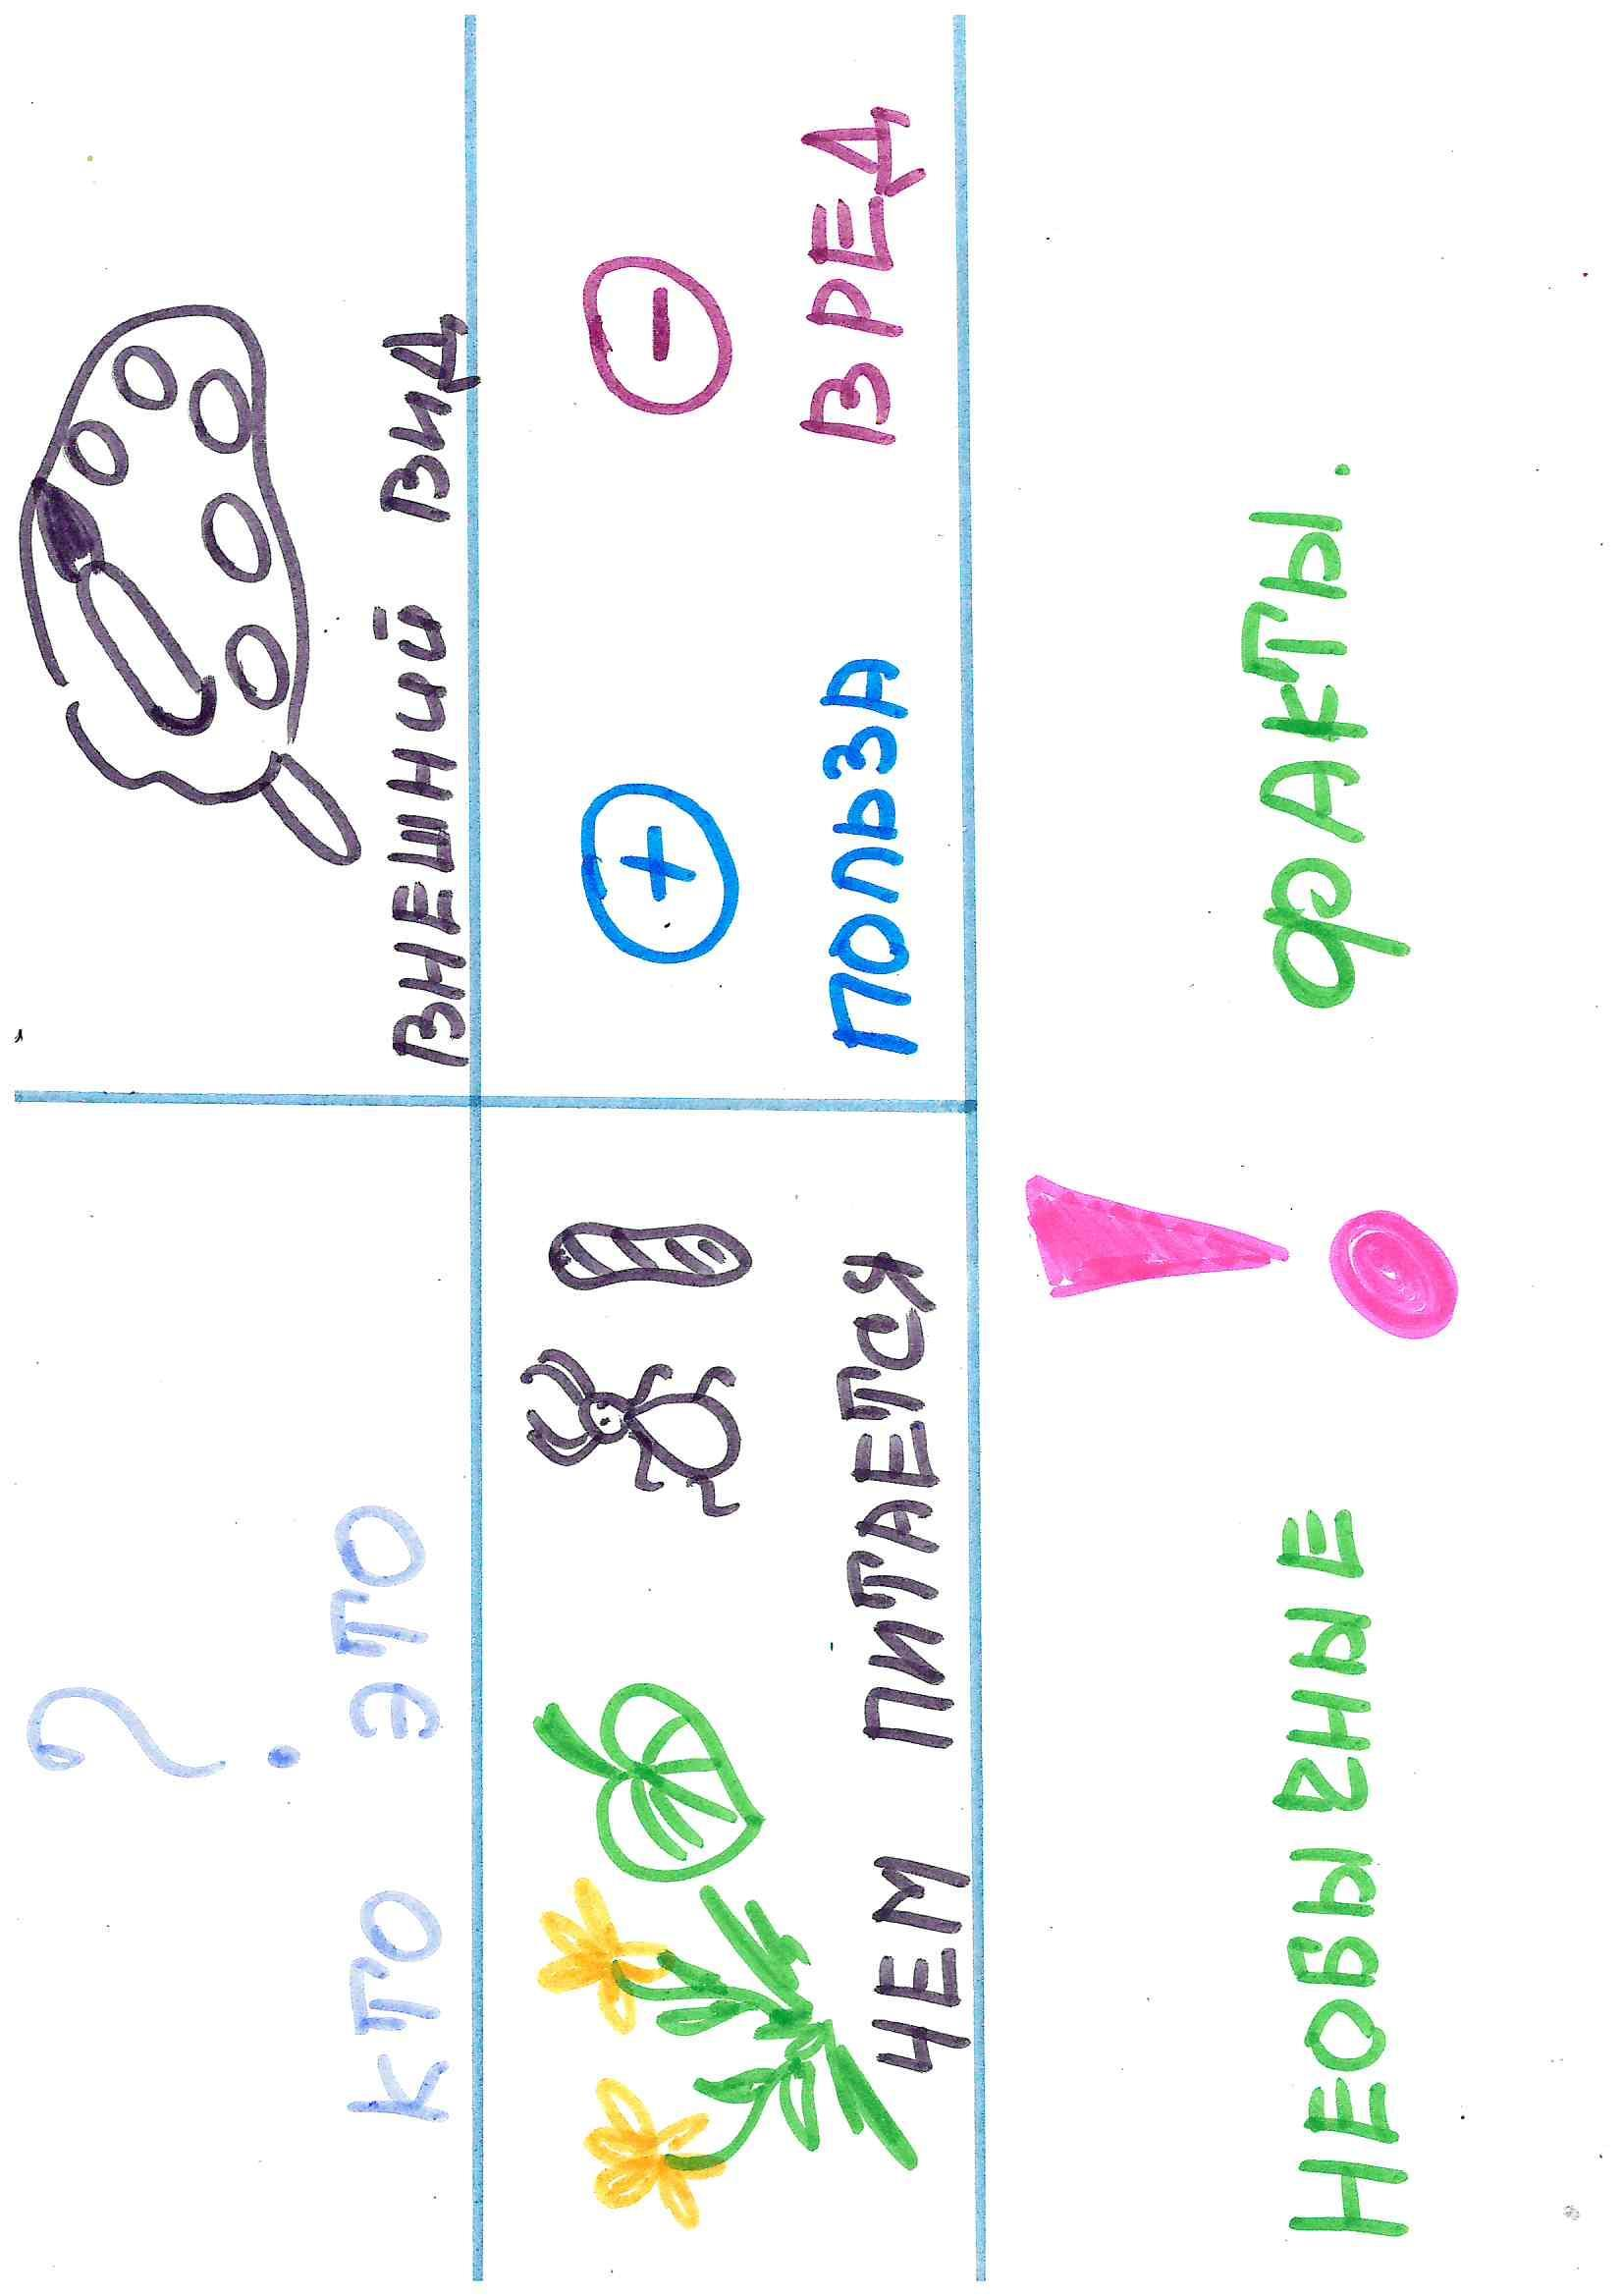 ?
КТО ЭТО
ВНЕШНИЙ ВИД
ЧЕМ ПИТАЕТСЯ
+ −
ПОЛЬЗА ВРЕД
!
НЕОБЫЧНЫЕ ФАКТЫ.